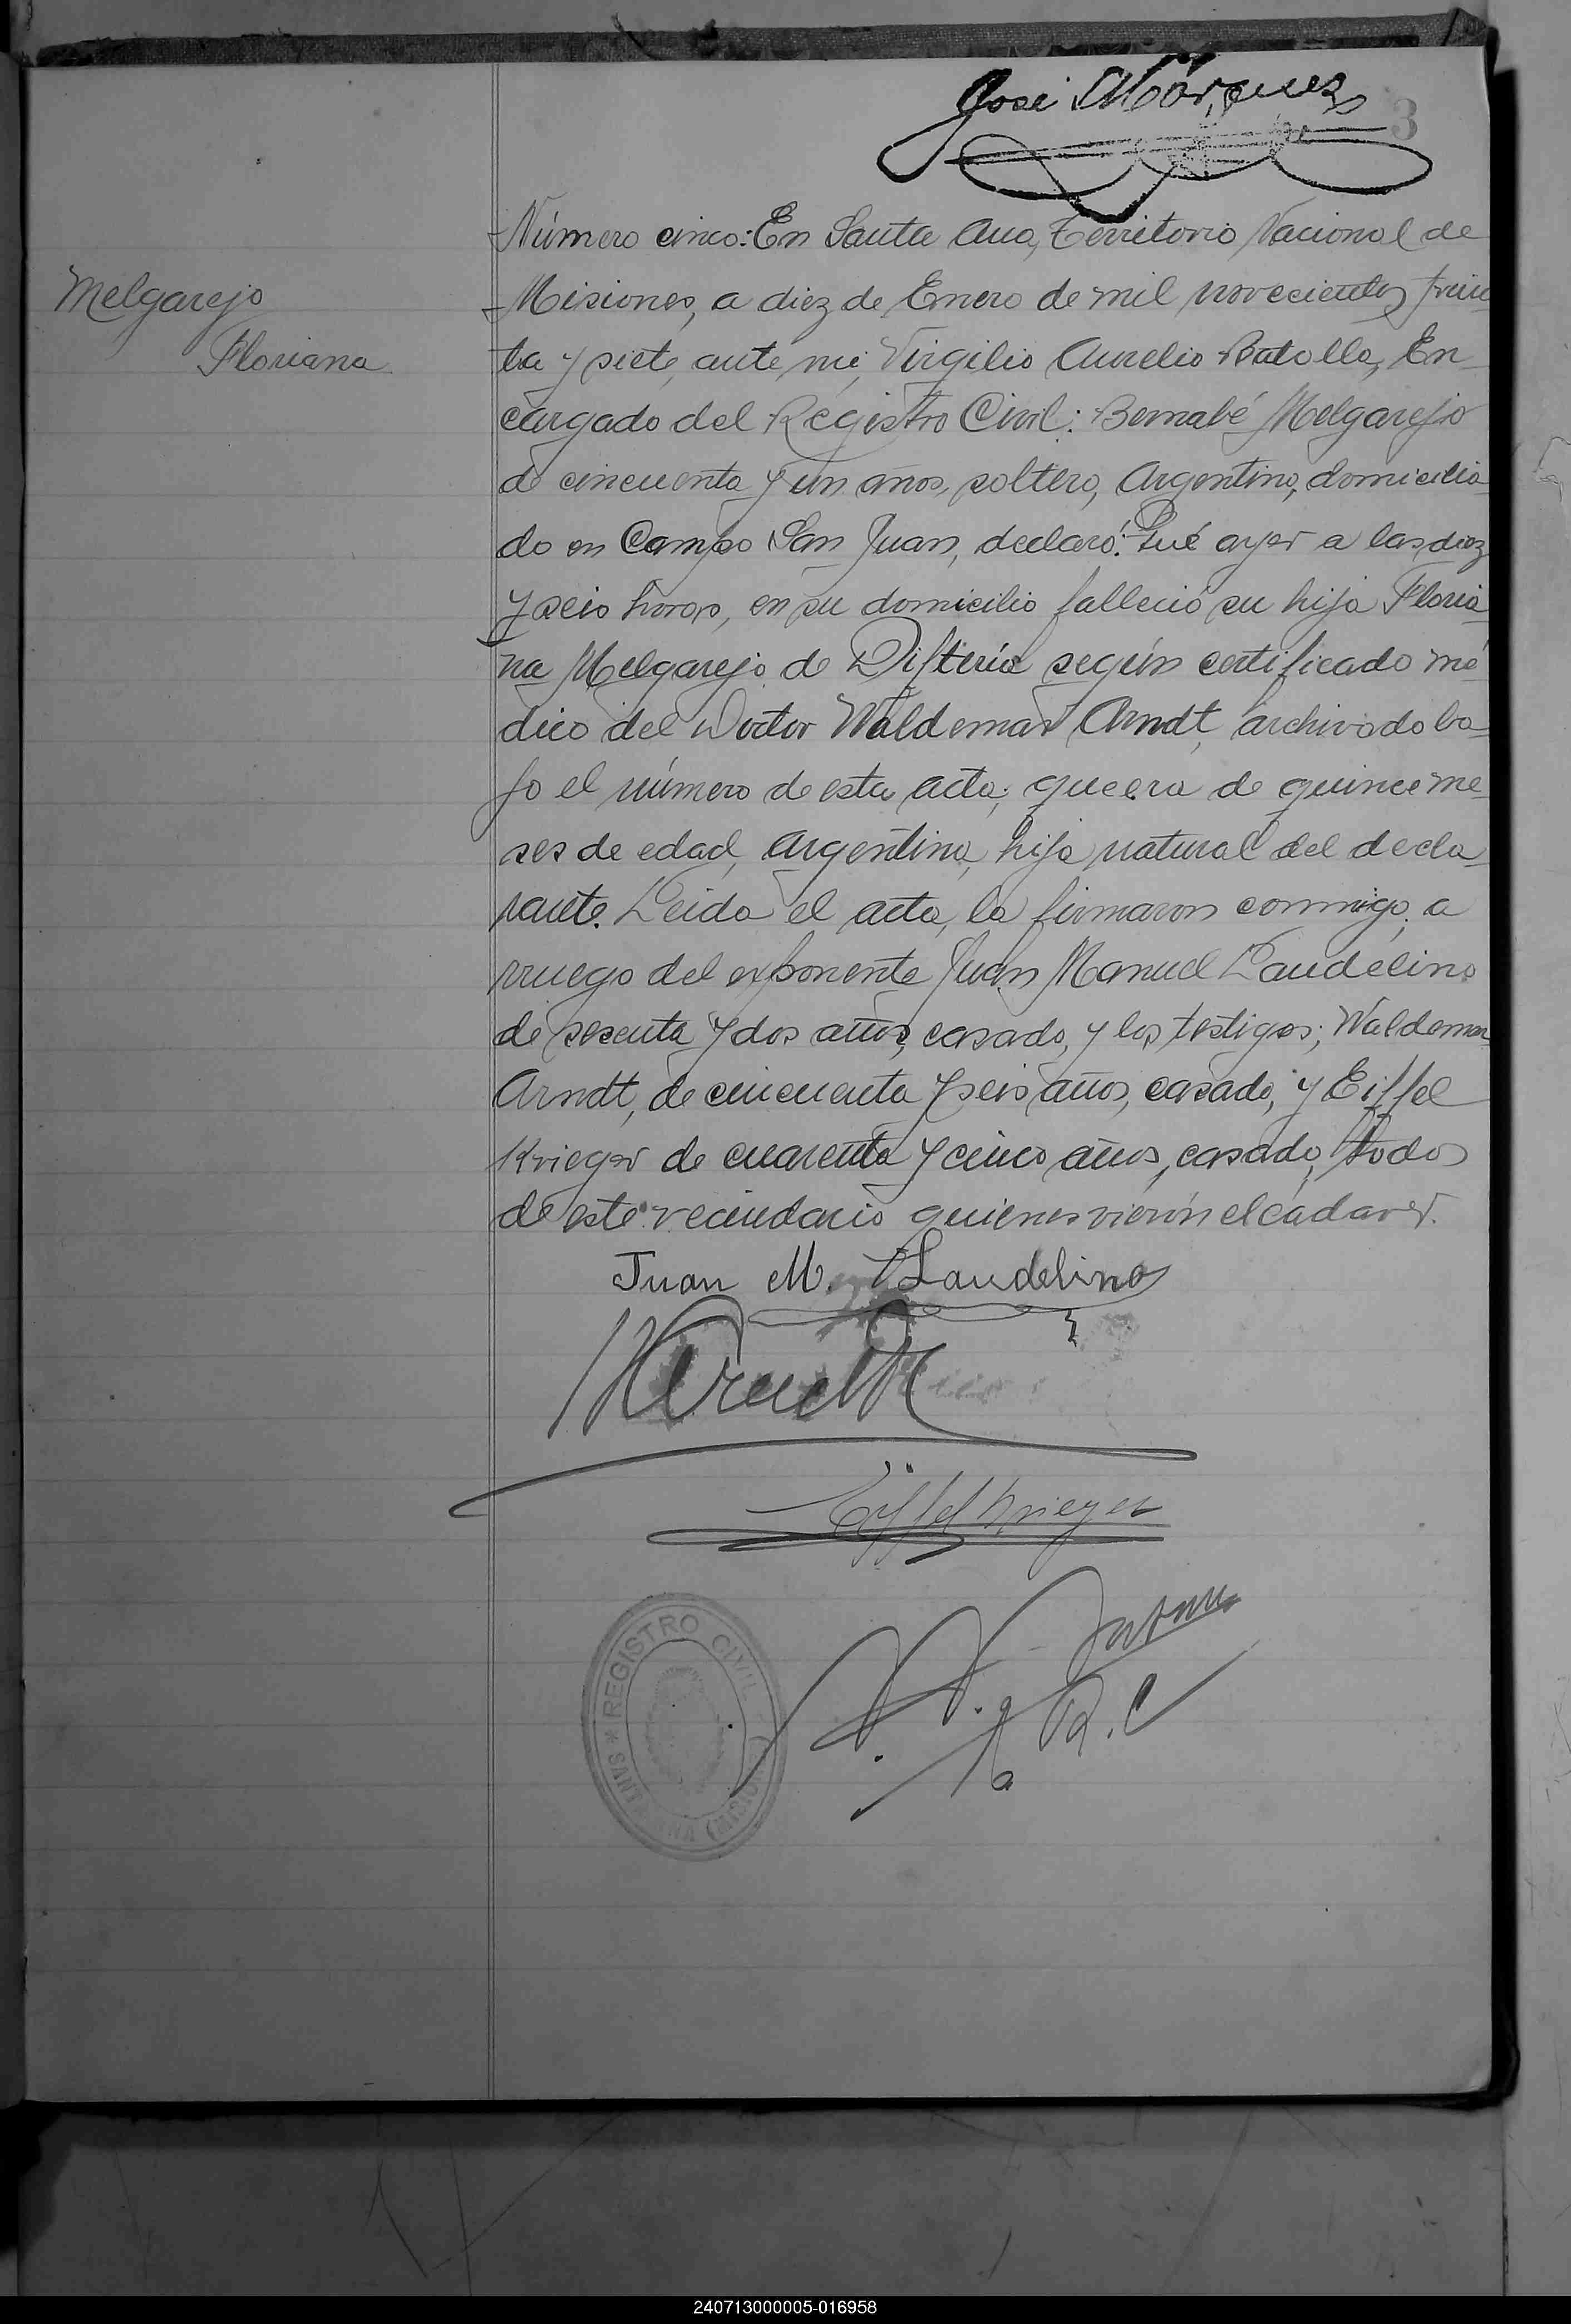 José Márquez
3
Número cinco: En Santa Ana, Territorio Nacional de
Melgarejo
Misiones, a diez de Enero de mil novecientos trein
Floriana
ta y siete, ante mi, Virgilio Aurelio Batolla, En-
cargado del Registro Civil: Bernabé Melgarejo
de cincuenta y un años, soltero, Argentino, domicilia-
do en Campo San Juan, declaró: Qué ayer a las diez
y seis horas, en su domicilio falleció su hija Floria-
na Melgarejo de Difteria según certificado mé-
dico del Doctor Waldemar Arndt, archivado ba-
jo el número de esta acta; que era de quince me-
ses de edad, Argentina, hija natural del decla-
rante. Leida el acta, la firmaron conmigo, a
rruego del exponente Juan Manuel Laudelino
de sesenta y dos años, casado, y los testigos; Waldemar
Arndt, de cincuenta y seis años, casado, y Eiffel
Krieger de cuarenta y cinco años, casado, todos
de este vecindario quienes vieron el cadaver.
Juan M. Laudelino
WArndt
Eiffel Krieger
R.C
REGISTRO CIVIL
* SANTA ANA (MISIONES)
240713000005-016958